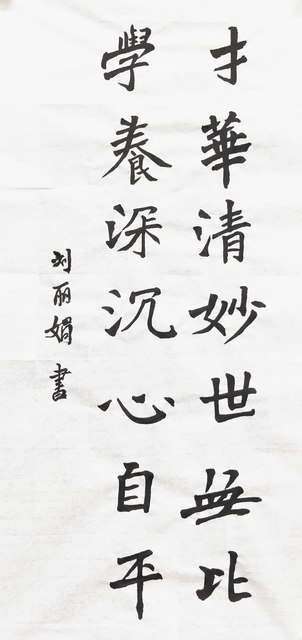 才華清妙世無比
學養深沉心自平
刘丽娟書